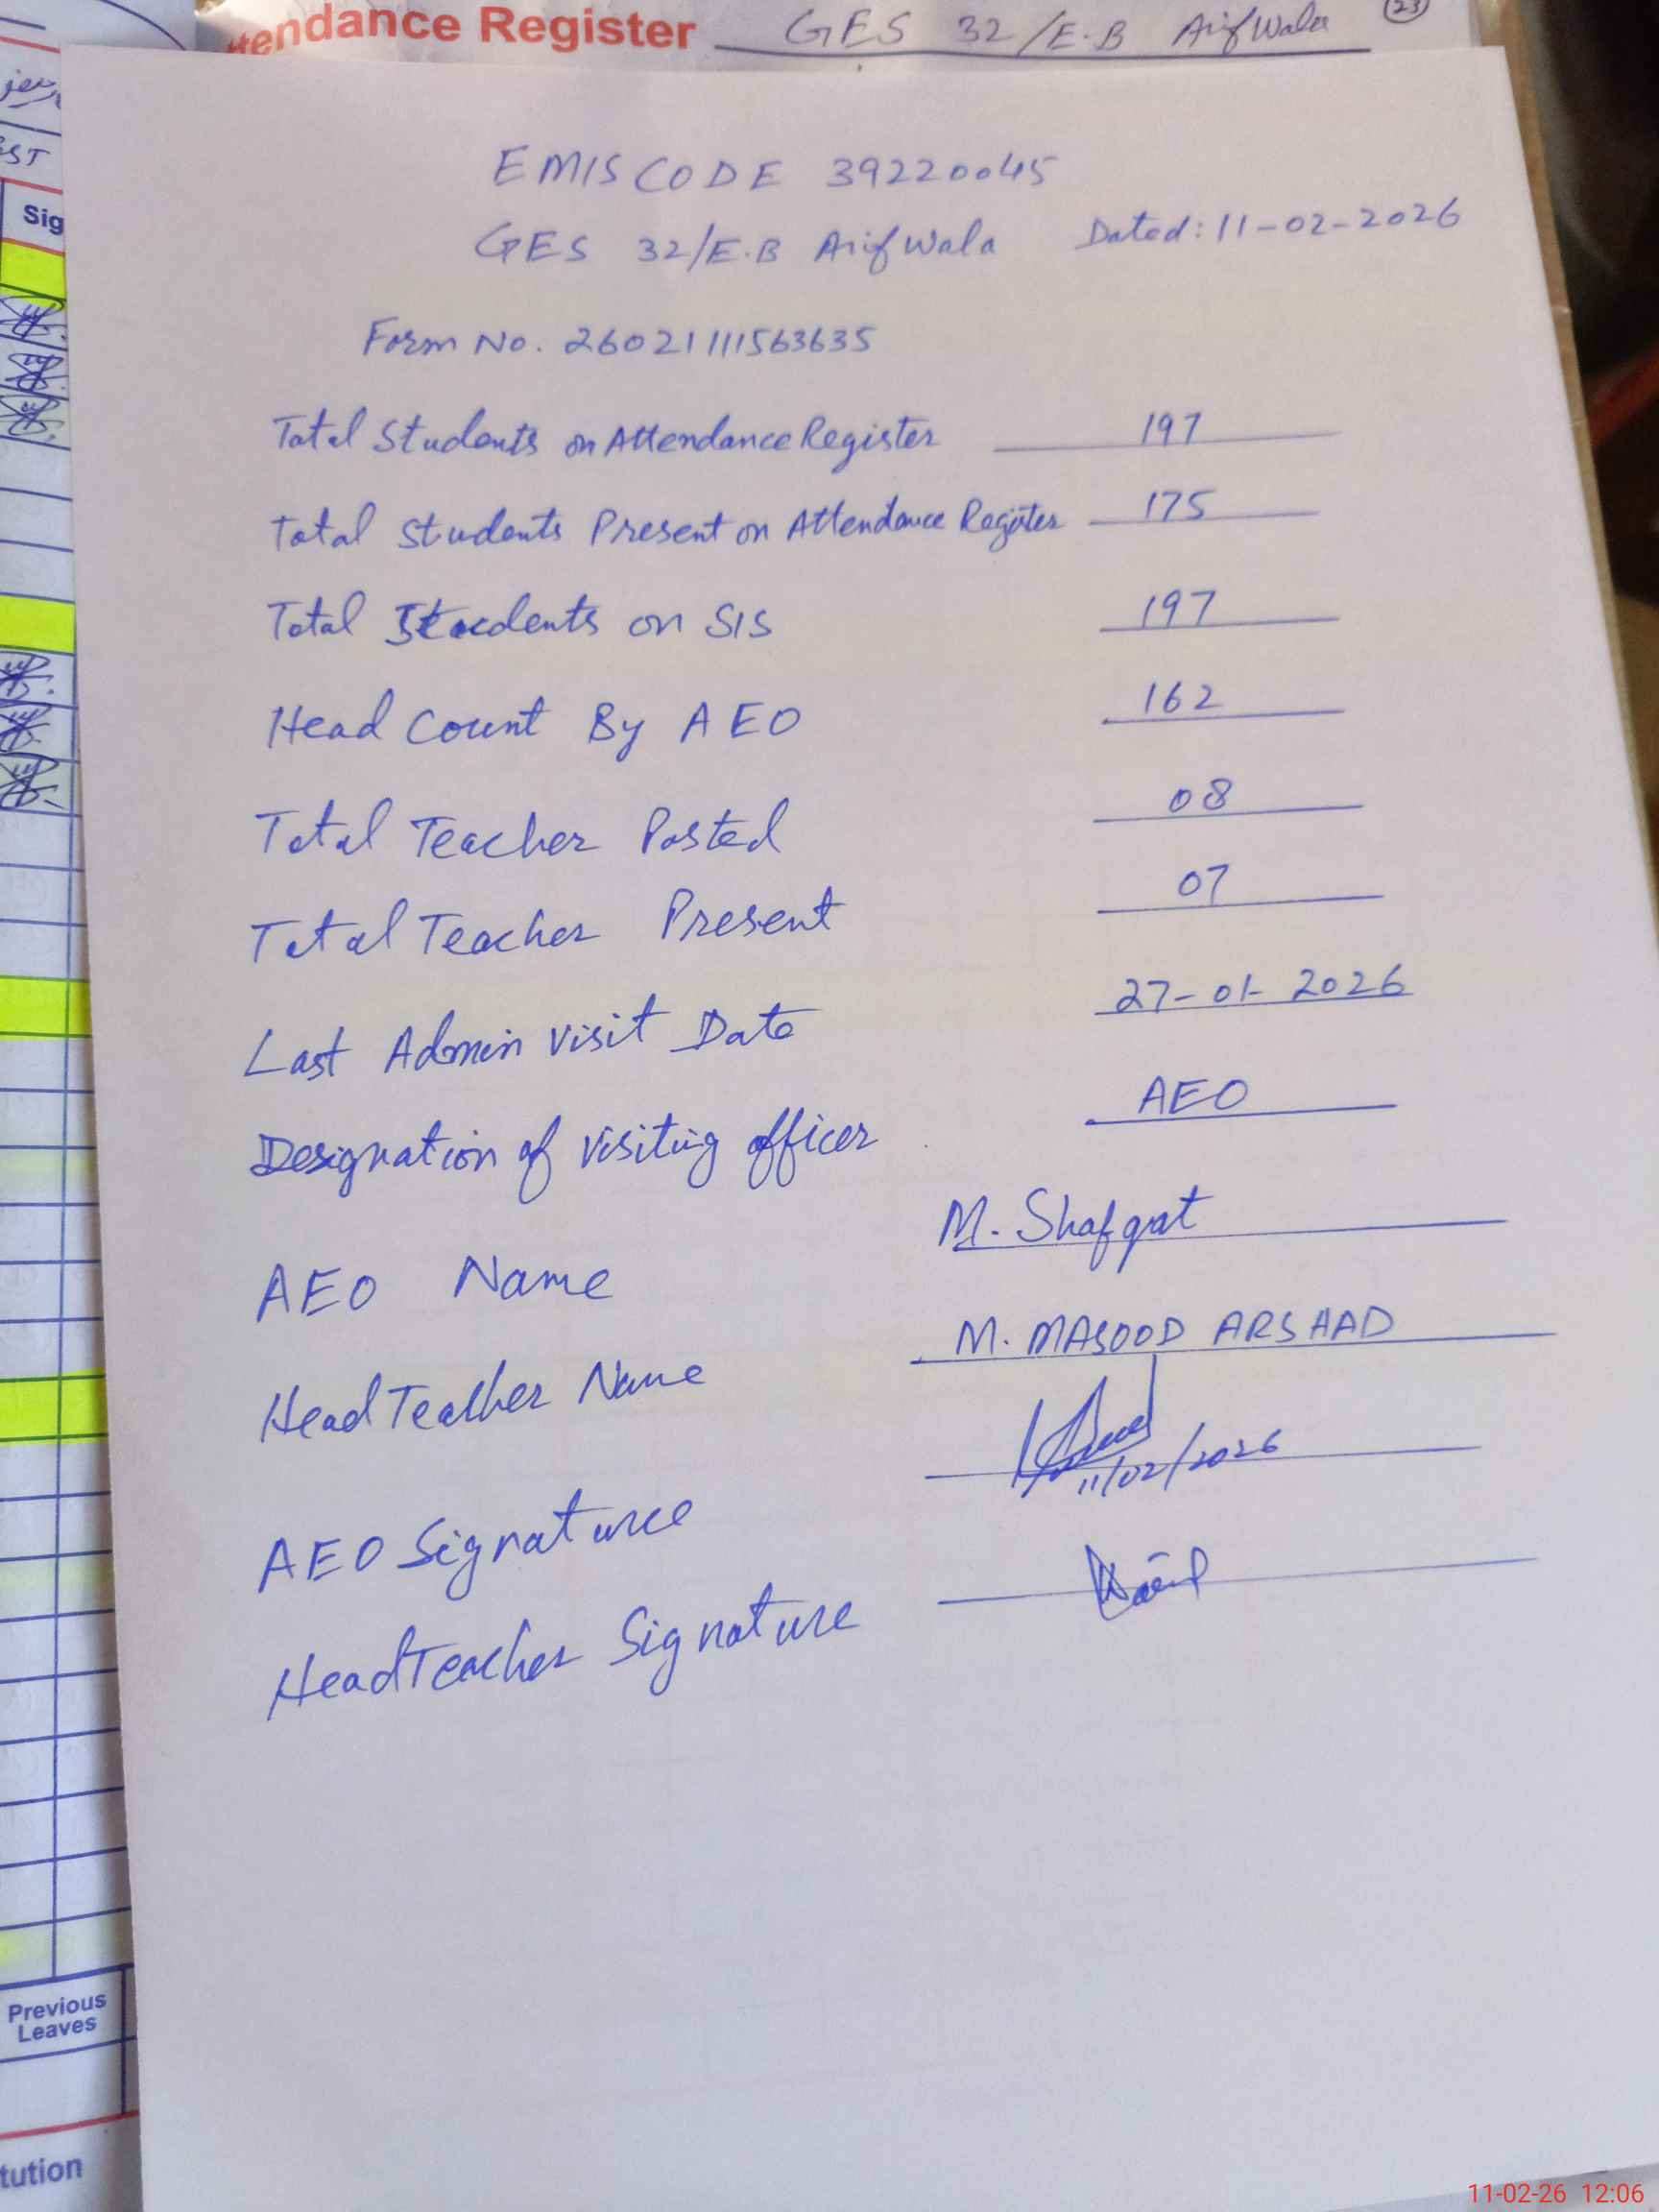 tendance Register GES 32/E.B Arif Wala 23
EST
Sig
EMIS CODE 39220045
GES 32/E.B Arif Wala Dated: 11-02-2026
Form No. 26021111563635
Total Students on Attendance Register 197
Total Students Present on Attendance Register 175
Total Students on SIS 197
Head Count By AEO 162
Total Teacher Posted 08
Total Teacher Present 07
Last Admin Visit Date 27-01-2026
Designation of Visiting officer AEO
AEO Name M. Shafqat
Head Teacher Name M. MASOOD ARSHAD
11/02/2026
AEO Signature
Head Teacher Signature
Previous
Leaves
tution
11-02-26 12:06